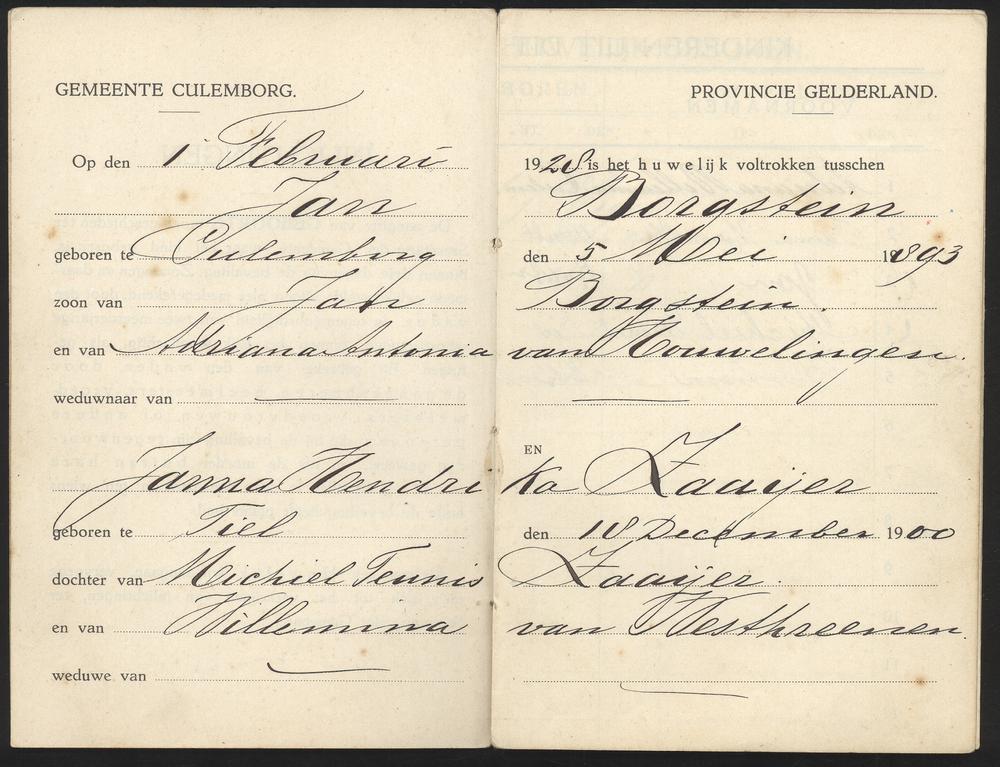 GEMEENTE CULEMBORG. PROVINCIE GELDERLAND.
Op den 1 Februari 1928 is het huwelijk voltrokken tusschen
Jan Borgstein
geboren te Culemborg den 5 Mei 1893
zoon van Jan Borgstein
en van Adriana Antonia van Houwelingen.
weduwnaar van
EN
Janna Hendrika Zaaijer
geboren te Tiel den 18 December 1900
dochter van Michiel Teunis Zaaijer.
en van Willemina van Westhreenen.
weduwe van